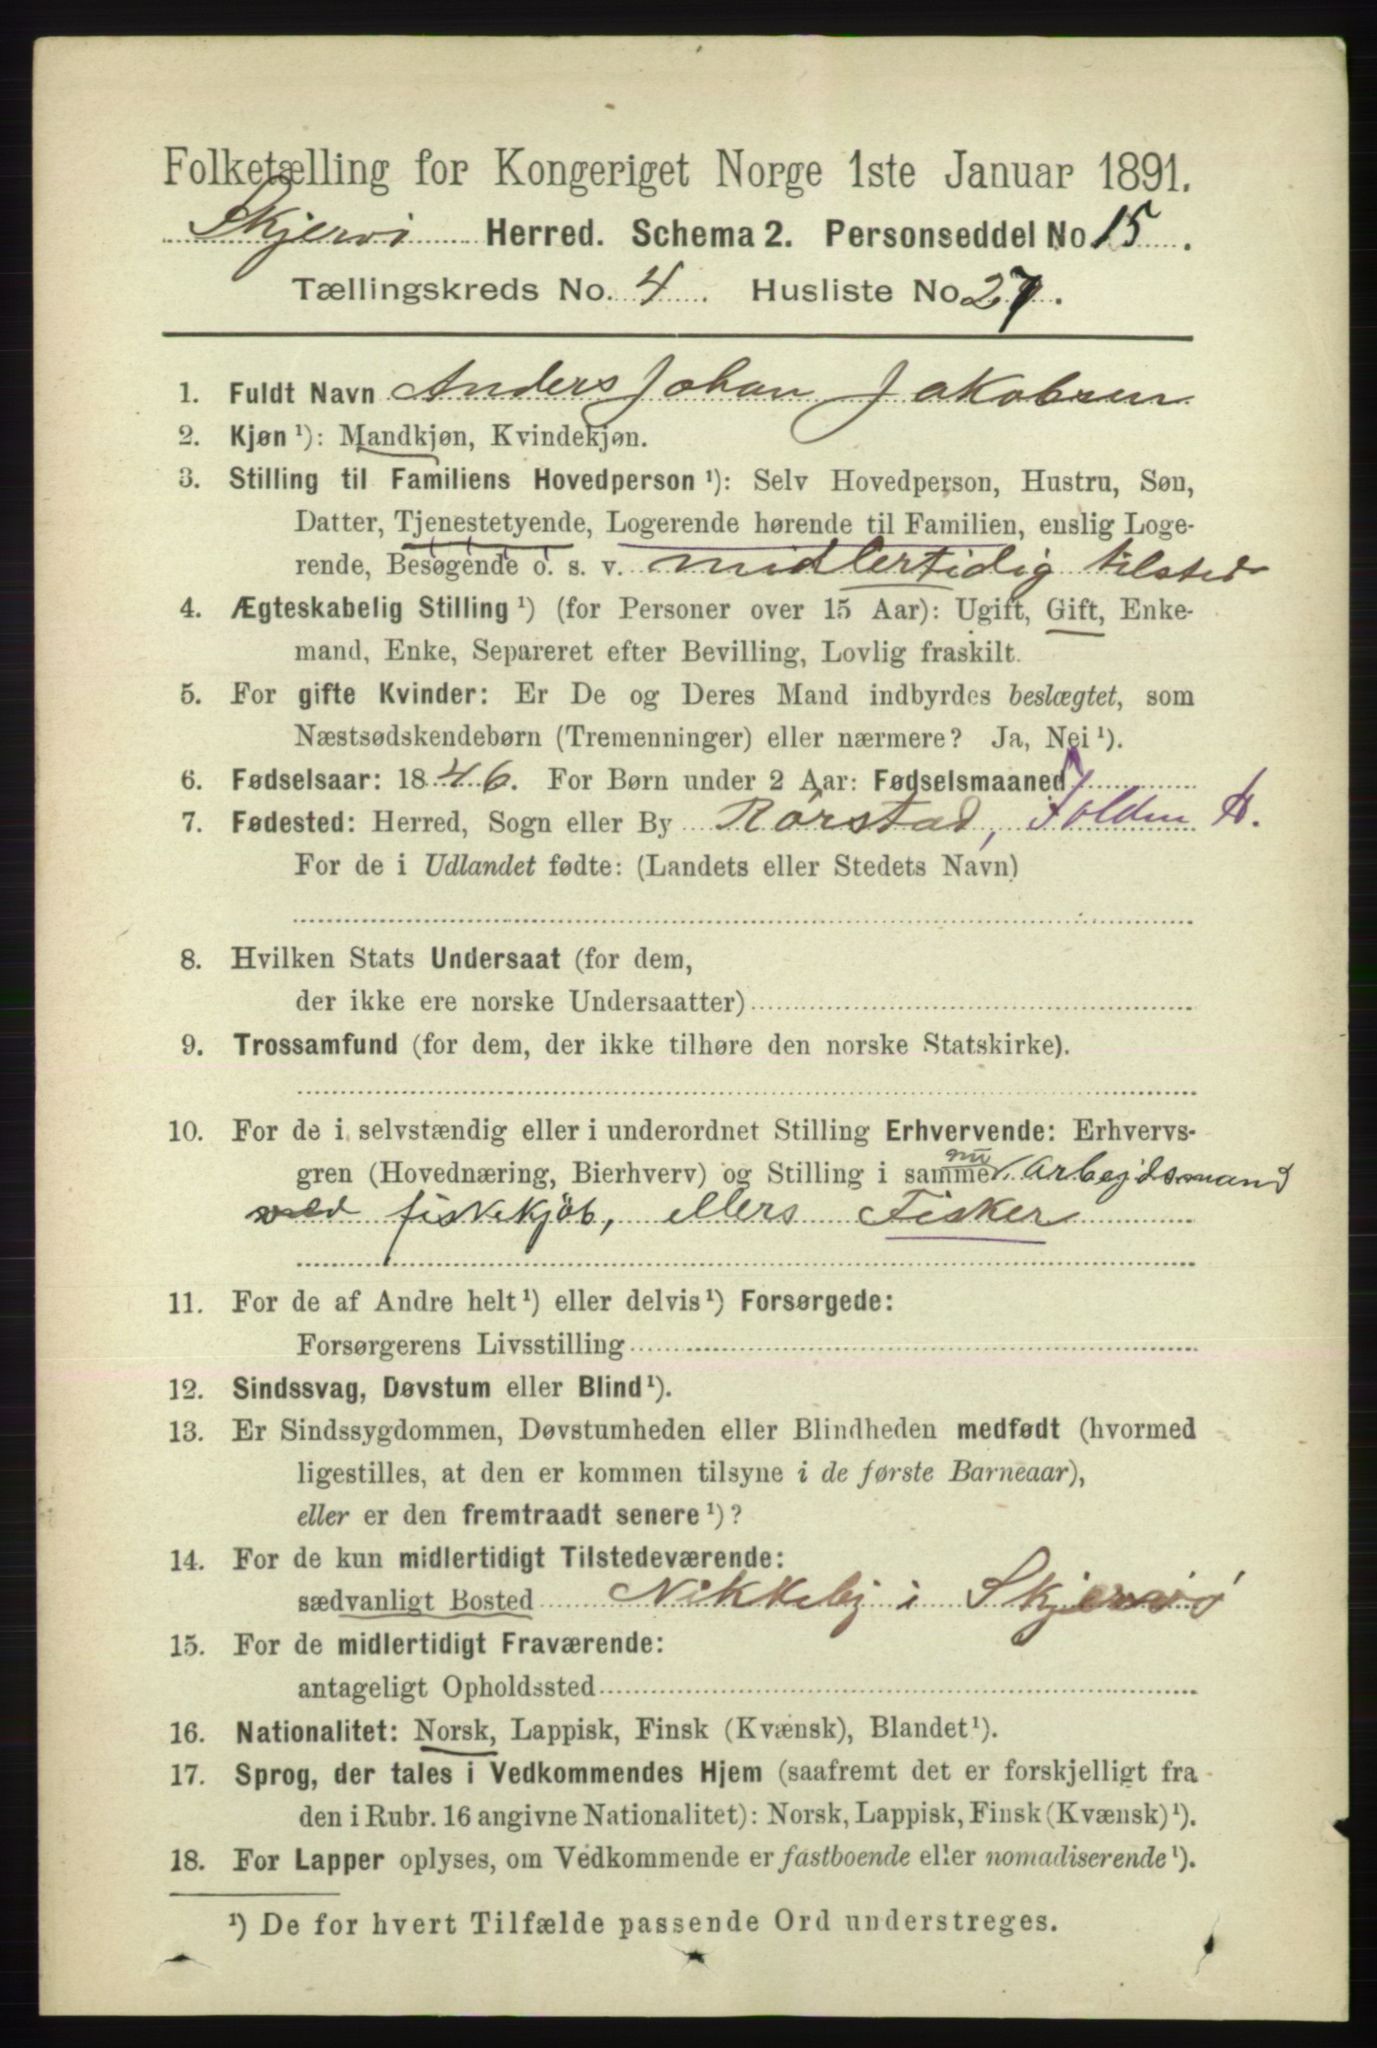 Folketælling for Kongeriget Norge 1ste Januar 1891.
Skjervø Herred. Schema 2. Personseddel No 15.
Tællingskreds No. 4. Husliste No 27.
1. Fuldt Navn Anders Johan Jakobsen
2. Kjøn ¹): Mandkjøn, Kvindekjøn.
3. Stilling til Familiens Hovedperson ¹): Selv Hovedperson, Hustru, Søn,
Datter, Tjenestetyende, Logerende hørende til Familien, enslig Loge-
rende, Besøgende o. s. v. midlertidig tilsted
4. Ægteskabelig Stilling ¹) (for Personer over 15 Aar): Ugift, Gift, Enke-
mand, Enke, Separeret efter Bevilling, Lovlig fraskilt.
5. For gifte Kvinder: Er De og Deres Mand indbyrdes beslægtet, som
Næstsødskendebørn (Tremenninger) eller nærmere? Ja, Nei ¹).
6. Fødselsaar: 1846. For Børn under 2 Aar: Fødselsmaaned
7. Fødested: Herred, Sogn eller By Rörstad, Folden H.
For de i Udlandet fødte: (Landets eller Stedets Navn)
8. Hvilken Stats Undersaat (for dem,
der ikke ere norske Undersaatter)
9. Trossamfund (for dem, der ikke tilhøre den norske Statskirke).
10. For de i selvstændig eller i underordnet Stilling Erhvervende: Erhvervs-
gren (Hovednæring, Bierhverv) og Stilling i samme nu Arbejdsmand
ved fiskekjöb, ellers Fisker
11. For de af Andre helt ¹) eller delvis ¹) Forsørgede:
Forsørgerens Livsstilling
12. Sindssvag, Døvstum eller Blind ¹).
13. Er Sindssygdommen, Døvstumheden eller Blindheden medfødt (hvormed
ligestilles, at den er kommen tilsyne i de første Barneaar),
eller er den fremtraadt senere ¹)?
14. For de kun midlertidigt Tilstedeværende:
sædvanligt Bosted Nikkeby i Skjervø
15. For de midlertidigt Fraværende:
antageligt Opholdssted
16. Nationalitet: Norsk, Lappisk, Finsk (Kvænsk), Blandet ¹).
17. Sprog, der tales i Vedkommendes Hjem (saafremt det er forskjelligt fra
den i Rubr. 16 angivne Nationalitet): Norsk, Lappisk, Finsk (Kvænsk) ¹).
18. For Lapper oplyses, om Vedkommende er fastboende eller nomadiserende ¹).
¹) De for hvert Tilfælde passende Ord understreges.